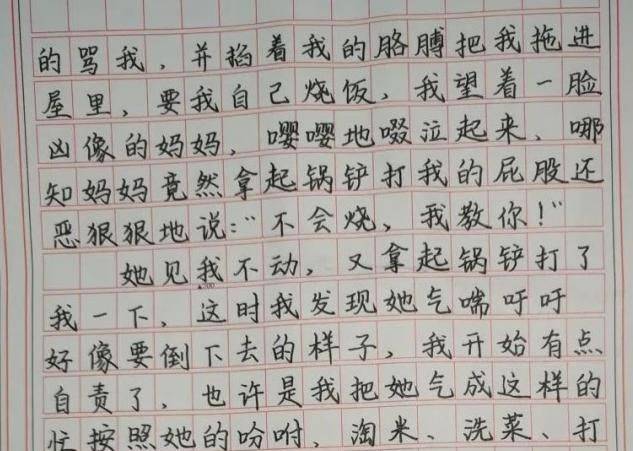 的骂我，并掐着我的胳膊把我拖进
屋里，要我自己烧饭，我望着一脸
凶像的妈妈，嘤嘤地啜泣起来，哪
知妈妈竟然拿起锅铲打我的屁股还
恶狠狠地说：“不会烧，我教你！”
她见我不动，又拿起锅铲打了
我一下，这时我发现她气喘吁吁
好像要倒下去的样子，我开始有点
自责了，也许是我把她气成这样的
忙按照她的吩咐，淘米、洗菜、打